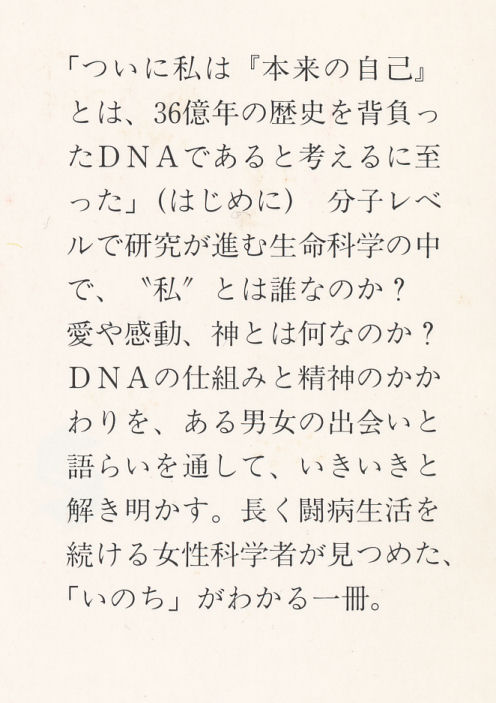 「ついに私は『本来の自己』
とは、36億年の歴史を背負っ
たＤＮＡであると考えるに至
った」(はじめに)　分子レベ
ルで研究が進む生命科学の中
で、〝私〟とは誰なのか？
愛や感動、神とは何なのか？
ＤＮＡの仕組みと精神のかか
わりを、ある男女の出会いと
語らいを通して、いきいきと
解き明かす。長く闘病生活を
続ける女性科学者が見つめた、
「いのち」がわかる一冊。